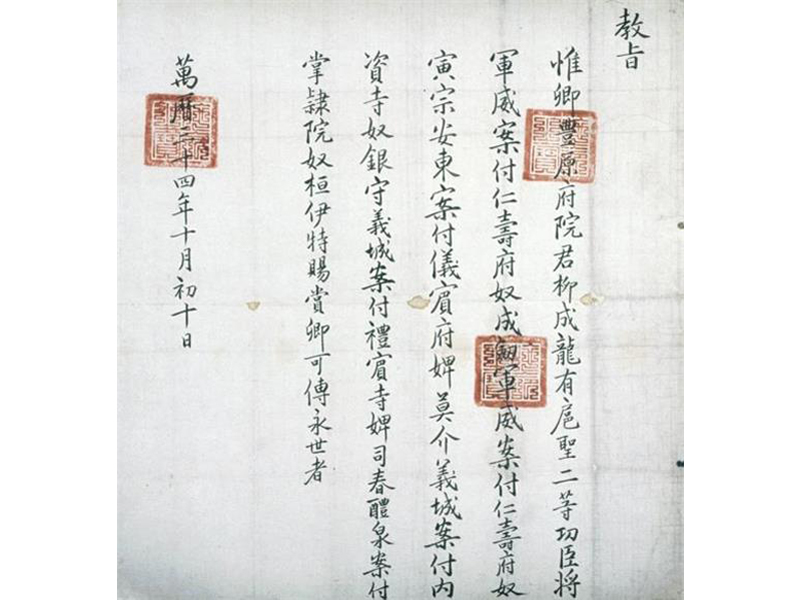 教旨
惟卿豐原府院君柳成龍有扈聖二等功臣將
軍威案付仁壽府奴成 軍威案付仁壽府奴
寅宗安東案付儀賓府婢莫介義城案付內
資寺奴銀守義城案付禮賓寺婢司春醴泉案付
掌隸院奴桓伊特賜賞卿可傳永世者
萬曆三十四年十月初十日